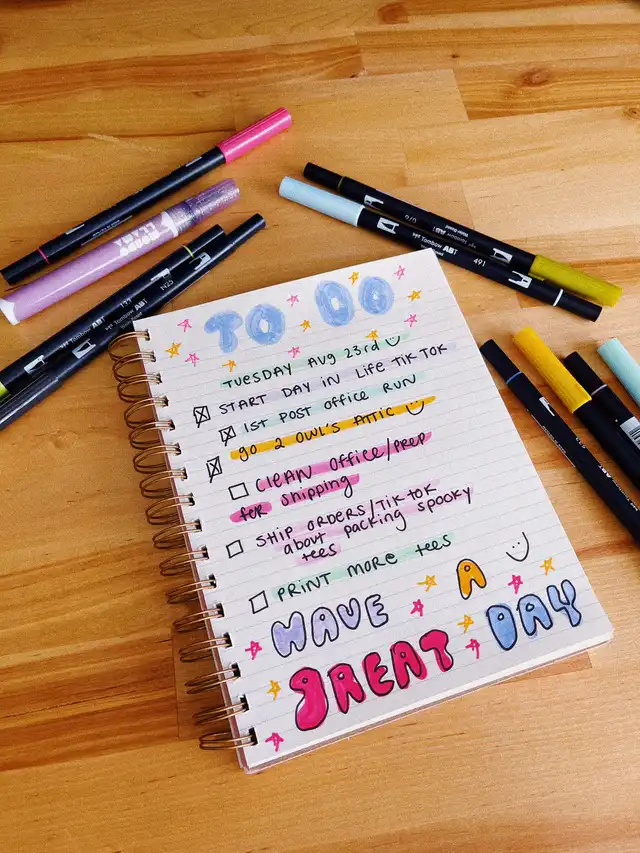 TO DO
TUESDAY Aug 23rd
START DAY IN LIFE TIKTOK
1ST POST OFFICE RUN
go 2 OWL'S ATTIC
CLEAN OFFICE/PREP
for shipping
SHIP ORDERS/TIKTOK
about packing spooky
tees
PRINT MORE tees
HAVE A
gREAT DAY
Tombow ABT
Tombow ABT
491
Tombow ABT
N25
Tombow ABT